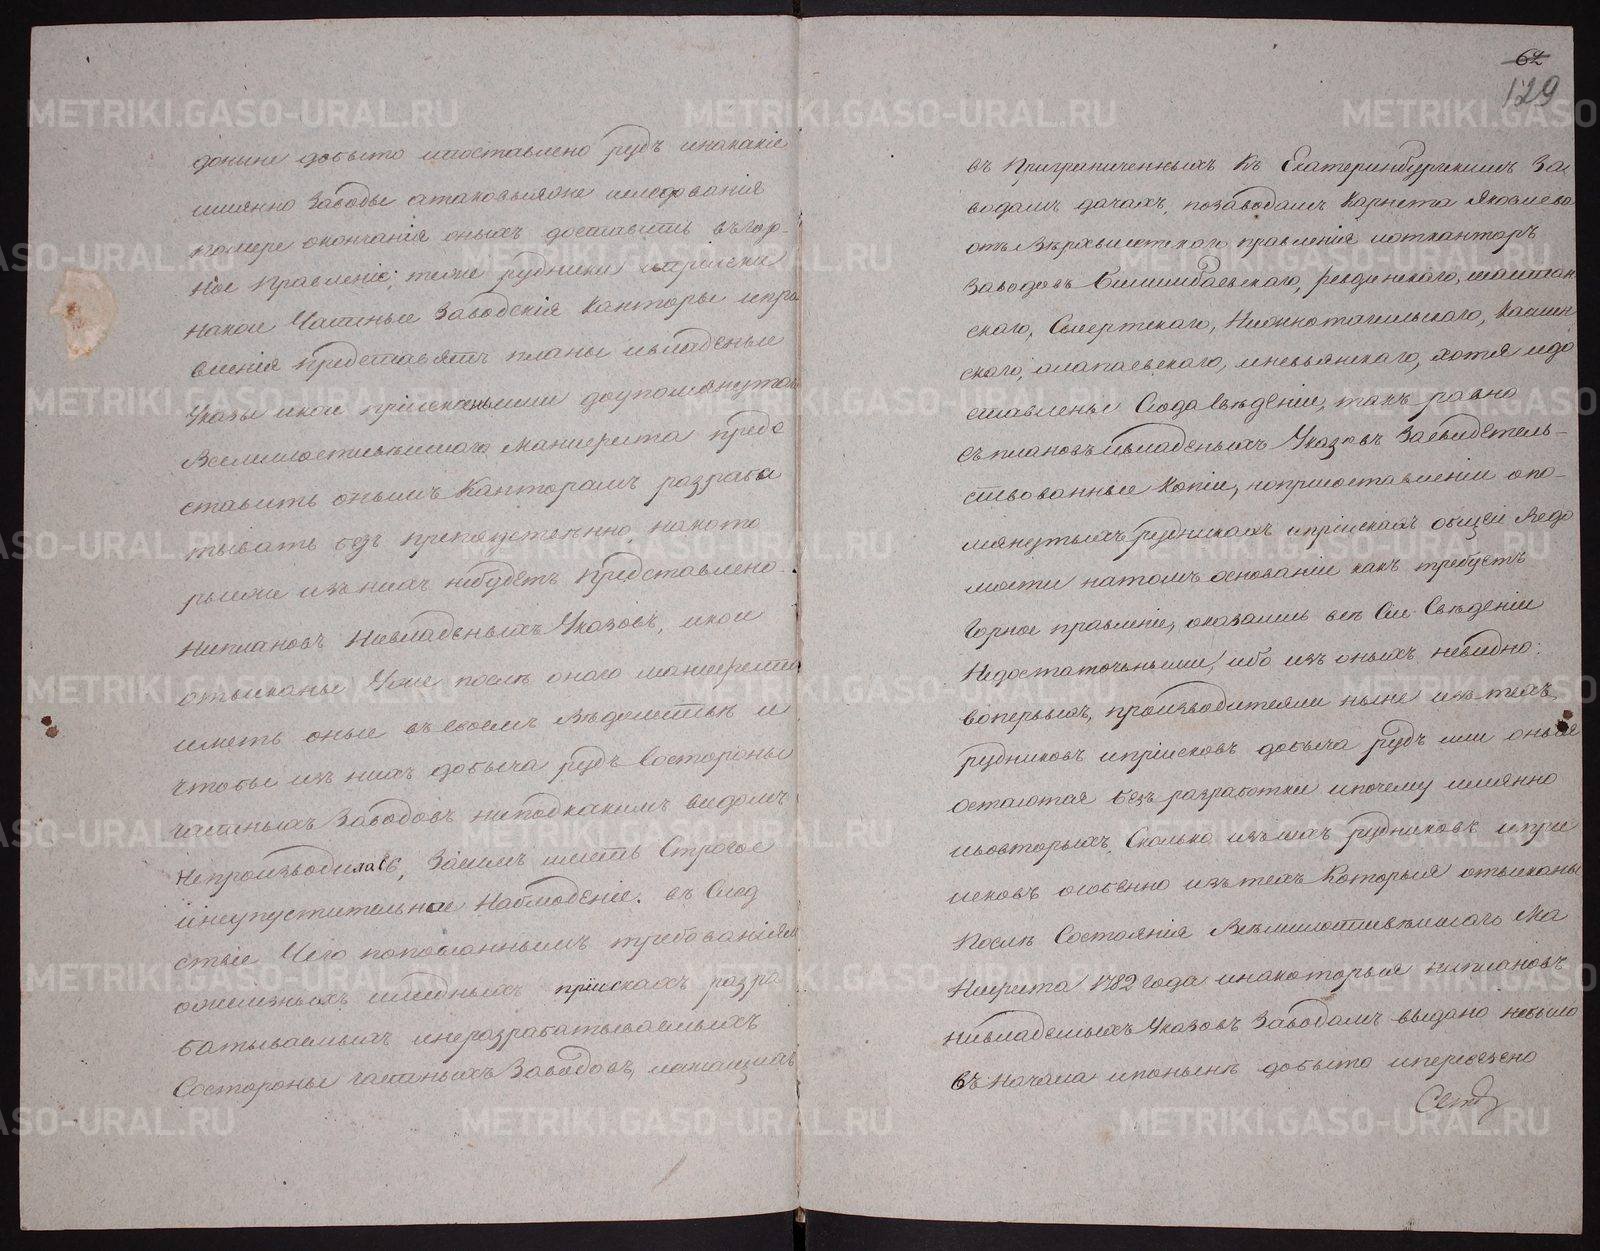 донине добыто идоставлено рудъ инакакіе
имянно Заводы атаковыяже изследованія
помере окончанія оныхъ доставить въгор-
ное правленіе; теже рудники ипріиски
накои Частные Заводскія Канторы ипра
вленія представятъ планы ивладеныe
Указы икои пріисканными доупомянутаго
Всемилостивѣйшаго Манифеста предо
ставить онымъ Канторамъ разраба
тывать безъ препятственно, накото
рыеже изъ нихъ небудетъ представлено
ниплановъ нивладѣнныхъ Указовъ, икои
отысканы Уже послѣ онаго манифеста
иметь оные въ своемъ Ведомствѣ и
чтобы изъ нихъ добыча рудъ Состороны
частныхъ Заводовъ ниподкакимъ видомъ
непроизводилась, Зачемъ иметь Строгое
инеупустительное Наблюденіе. въ След
ствіе Чего попосланнымъ требованіямъ
ожелезныхъ имедныхъ пріискахъ разра
батываемыхъ инеразрабатываемыхъ
Состороны частныхъ Заводовъ, лежащихъ
62
129
въ Приграниченныхъ Къ Екатеринбургскимъ За
водамъ дачахъ, позаводамъ Карнета Яковлева
отъ Верхъисетскаго правленія иотканторъ
Заводовъ Билимбаевскаго, ревдинскаго, шайтан
скаго, Сысертскаго, Нижнотагильскаго, Каслин
скаго, алапаевскаго, иневьянскаго, хотя идо
ставлены Сюда Сведении, такъ равно
съ плановъ ивладенныхъ Указовъ Засвидетель-
ствованные копіи, ноприсоставленіи опо-
мянутыхъ рудникахъ ипріискахъ общей Ведо
мости натомъ основаніи какъ требуетъ
Горное правленіе, оказались всѣ Сіи Сведении
Недостаточными, ибо изъ оныхъ невидно:
вопервыхъ, производителями ныне изъ техъ
рудниковъ ипріисковъ добыча рудъ или оныя
остаются безъ разработки ипочему имянно
ивовторыхъ, Сколько изъ ихъ рудниковъ ипри
исковъ особенно изъ техъ Которыя отысканы
После Состоянія Всемилостивѣйшаго Ма
Нифеста 1782 года инакоторыя ниплановъ
нивладенныхъ Указовъ Заводамъ выдано небыло
Съ начала ипоныне добыто иперевезено